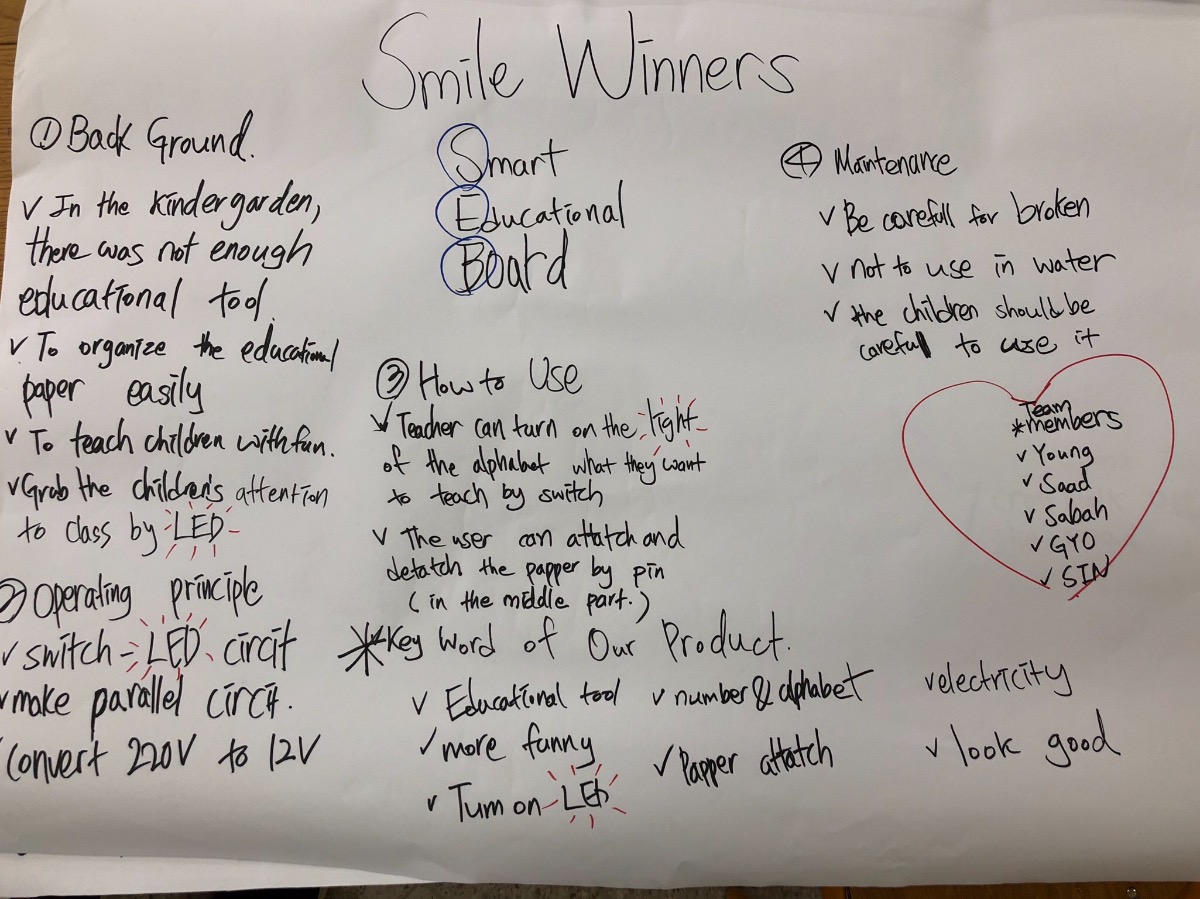 Smile Winners
① Back Ground.
✓ In the kindergarden,
there was not enough
educational tool.
✓ To organize the educational
paper easily
✓ To teach children with fun.
✓ Grab the children's attention
to class by LED
② Operating principle
✓ switch - LED circit
✓ make parallel circit.
✓ convert 220V to 12V
Smart
Educational
Board
③ How to Use
✓ Teacher can turn on the light
of the alphabet what they want
to teach by switch
✓ The user can attatch and
detatch the papper by pin
(in the middle part.)
④ Maintenance
✓ Be carefull for broken
✓ not to use in water
✓ the children should be
careful to use it
Team
*members
✓ Young
✓ Saad
✓ Sabah
✓ GYO
✓ SIN
* Key Word of Our Product.
✓ Educational tool ✓ number & alphabet ✓ electricity
✓ more funny ✓ Papper attatch ✓ look good
✓ Turn on LED